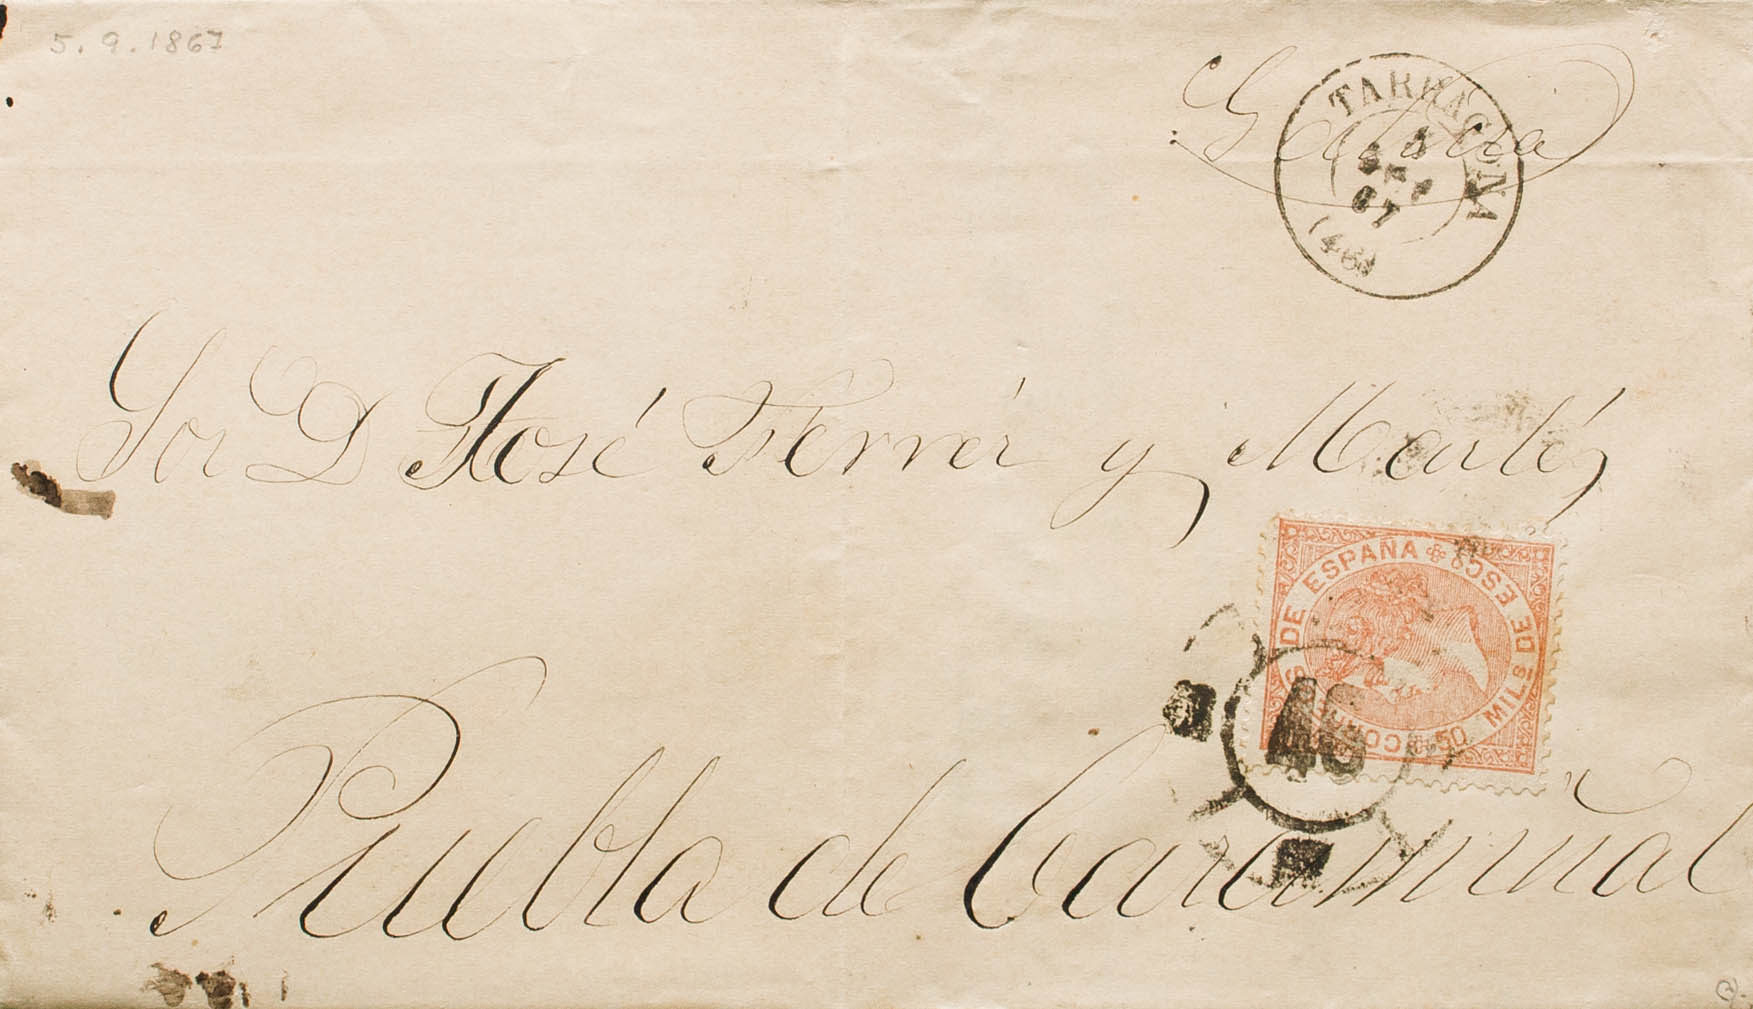 5.9.1867
Galicia
TARRAGONA
5
SET
67
(46)
Sor D José Ferrer y Martéz
CORREOS DE ESPAÑA
50 MILS DE ESCO
46
Puebla de Caramiñal